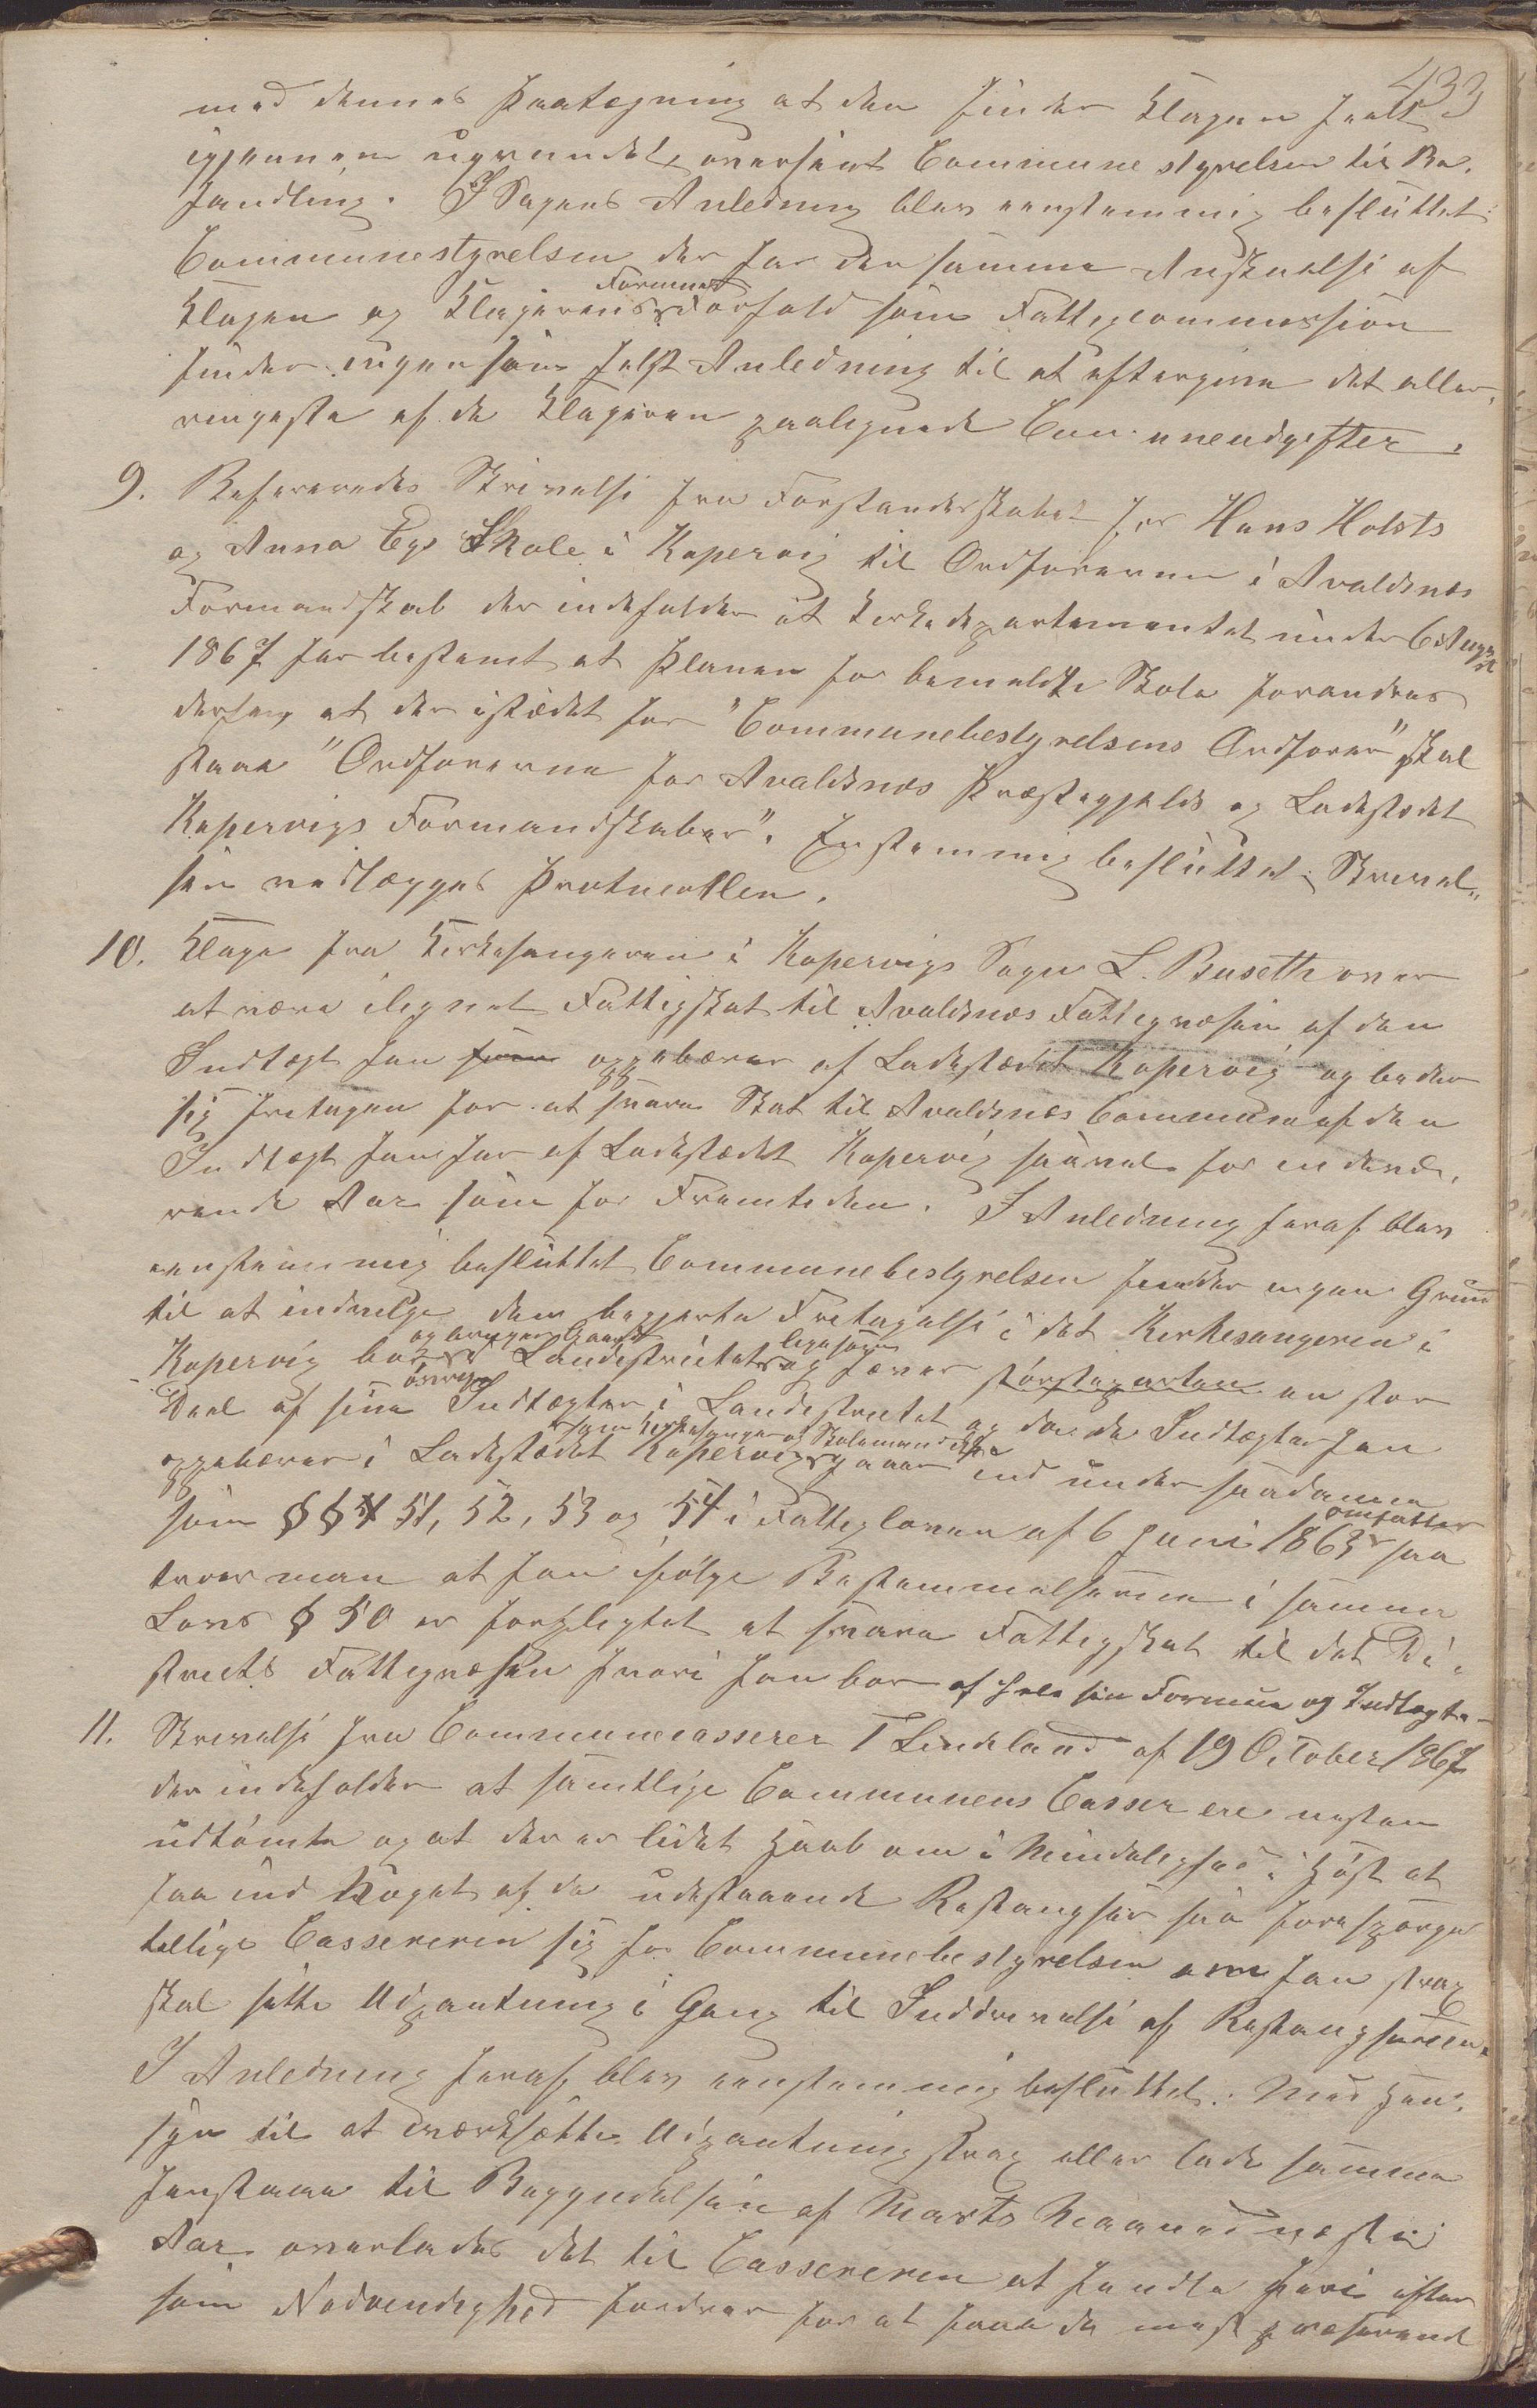 433
med dennes Paategning at den finder Klagen heelt
igjennem ugrundet, oversent Communestyrelsen til Be,
handling. I Sagens Anledning blev eenstemmig besluttet:
Communestyrelsen der har den samme Anskuelse af
Klagen og Klagerens Formues Forhold som Fattigcommission
finder ingensomhelst Anledning til at eftergive det aller,
ringeste af de Klageren paalignede Communeudgifter.
9. Refereredes Skrivelse fra Forstanderskabet for Hans Holsts
og Anna Egs Skole i Kopervig til Ordføreren i Avaldsnes
Formandskab der indeholder at Kirkedepartementet under 6 August
1867 har bestemt at Planen for bemeldte Skole forandres
derhen at der istedet for "Communebestyrelsens Ordfører" skal
staae "Ordførerne for Avaldsnes Præstegjelds og Ladestedet
Kopervigs Formandskaber". Enstemmig besluttet: Skrivel„
sen vedlægges Protocollen.
10. Klage fra Kirkesangeren i Kopervigs Sogn L. Buseth over
at være ilignet Fattigskat til Avaldsnes Fattigvæsen af den
Indtægt han som oppebærer af Ladestædet Kopervig og beder
sig fritagen for at svare Skat til Avaldsnes Commune af den
Indtægt han har af Ladestædet Kopervig saavel for indevæ,
rende Aar som for Fremtiden. I Anledning heraf blev
eenstemmig besluttet Communebestyrelsen finder ingen Grund
til at indvilge den begjerte Fritagelse i det Kirkesangeren i
Kopervig bor og bruger Gaard i Landdistrictet og ligesom hæver størsteparten en stor
Deel af sine øvrige Indtægter i Landdistrictet og da de Indtægter han
oppebærer i Ladestædet Kopervig som Kirkesanger og Skolemand ikke gaaer ind under saadanne
som §§ 51, 52, 53 og 54 i Fattigloven af 6 Juni 1863 omfatter saa
troer man at han ifølge Bestemmelserne i samme
Lovs § 50 er forpligtet at svare Fattigskat til det Di„
stricts Fattigvæsen hvori han bor af hele sin Formue og Indtægt.
11. Skrivelse fra Communecasserer T Lindeland af 19 October 1867
der indeholder at samtlige Communens Casser ere næsten
udtømte og at der er lidet Haab om i Mindelighed i Høst at
faa ind Noget af de udestaaende Restancer saa forespørger
tillige Cassereren sig for Communebestyrelsen om han strax
skal sætte Udpantning i Gang til Inddrivelse af Restancerne.
I Anledning heraf blev eenstemmig besluttet: Med Hen,
syn til at iværksætte Udpantning strax eller lade samme
henstaae til Begyndelsen af Marts Maaned næste
Aar overlades det til Cassereren at handle heri efter
som Nødvendighed fordrer for at faae de mest presserende